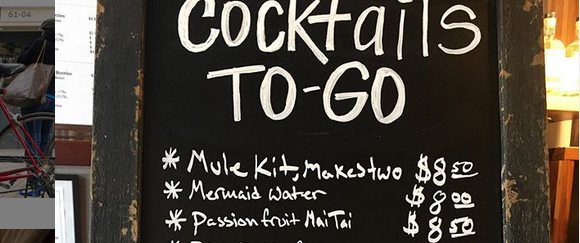 61-04
Cocktails
TO-GO
* Mule Kit, Makes two $8 50
* Mermaid Water $8 00
* Passion fruit Mai Tai $8 50